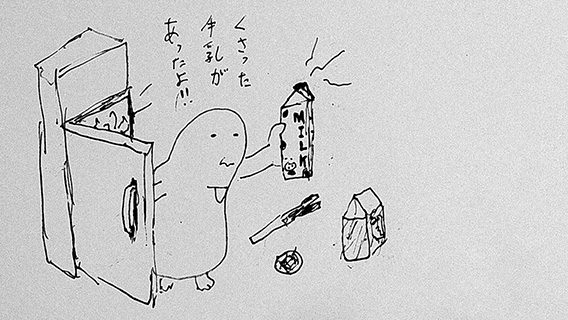 くさった
牛乳が
あったよ!!!
MILK